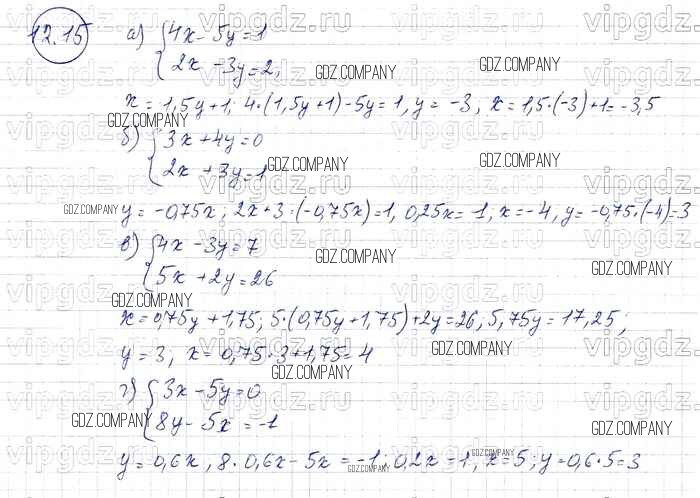 12.15 а) {4x - 5y = 1
{2x - 3y = 2,
x = 1,5y + 1; 4·(1,5y + 1) - 5y = 1, y = -3, x = 1,5·(-3) + 1 = -3,5
б) {3x + 4y = 0
{2x + 3y = 1
y = -0,75x; 2x + 3·(-0,75x) = 1, 0,25x = 1; x = -4, y = -0,75·(-4) = 3
в) {4x - 3y = 7
{5x + 2y = 26
x = 0,75y + 1,75, 5·(0,75y + 1,75) + 2y = 26, 5,75y = 17,25;
y = 3, x = 0,75·3 + 1,75 = 4
г) {3x - 5y = 0
{8y - 5x = -1
y = 0,6x, 8·0,6x - 5x = -1; 0,2x - 1, x = 5; y = 0,6·5 = 3
vipgdz.ru
GDZ.COMPANY